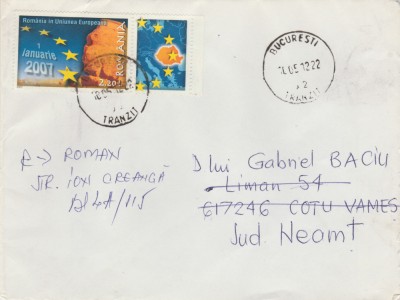 România în Uniunea Europeană
1
Ianuarie
2007
2.20
ROMÂNIA
TRANZIT
BUCURESTI
10.05 12.22
2
TRANZIT
R→ ROMAN
STR. ION CREANGĂ
Bl 4A/115
Dlui Gabriel BACIU
Liman 54
617246 COTU VAMES
Jud Neamt